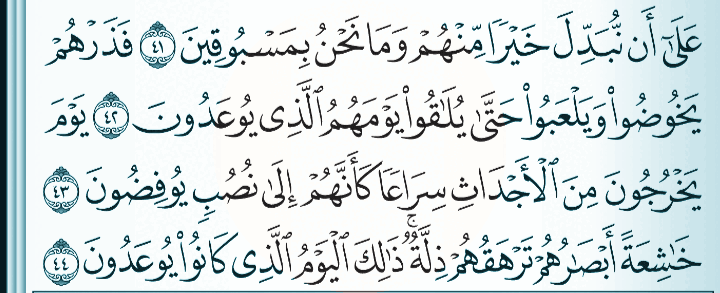 عَلَىٰٓ أَن نُّبَدِّلَ خَيْرًا مِّنْهُمْ وَمَا نَحْنُ بِمَسْبُوقِينَ ٤١ فَذَرْهُمْ
يَخُوضُوا۟ وَيَلْعَبُوا۟ حَتَّىٰ يُلَٰقُوا۟ يَوْمَهُمُ ٱلَّذِى يُوعَدُونَ ٤٢ يَوْمَ
يَخْرُجُونَ مِنَ ٱلْأَجْدَاثِ سِرَاعًا كَأَنَّهُمْ إِلَىٰ نُصُبٍ يُوفِضُونَ ٤٣
خَٰشِعَةً أَبْصَٰرُهُمْ تَرْهَقُهُمْ ذِلَّةٌ ۚ ذَٰلِكَ ٱلْيَوْمُ ٱلَّذِى كَانُوا۟ يُوعَدُونَ ٤٤